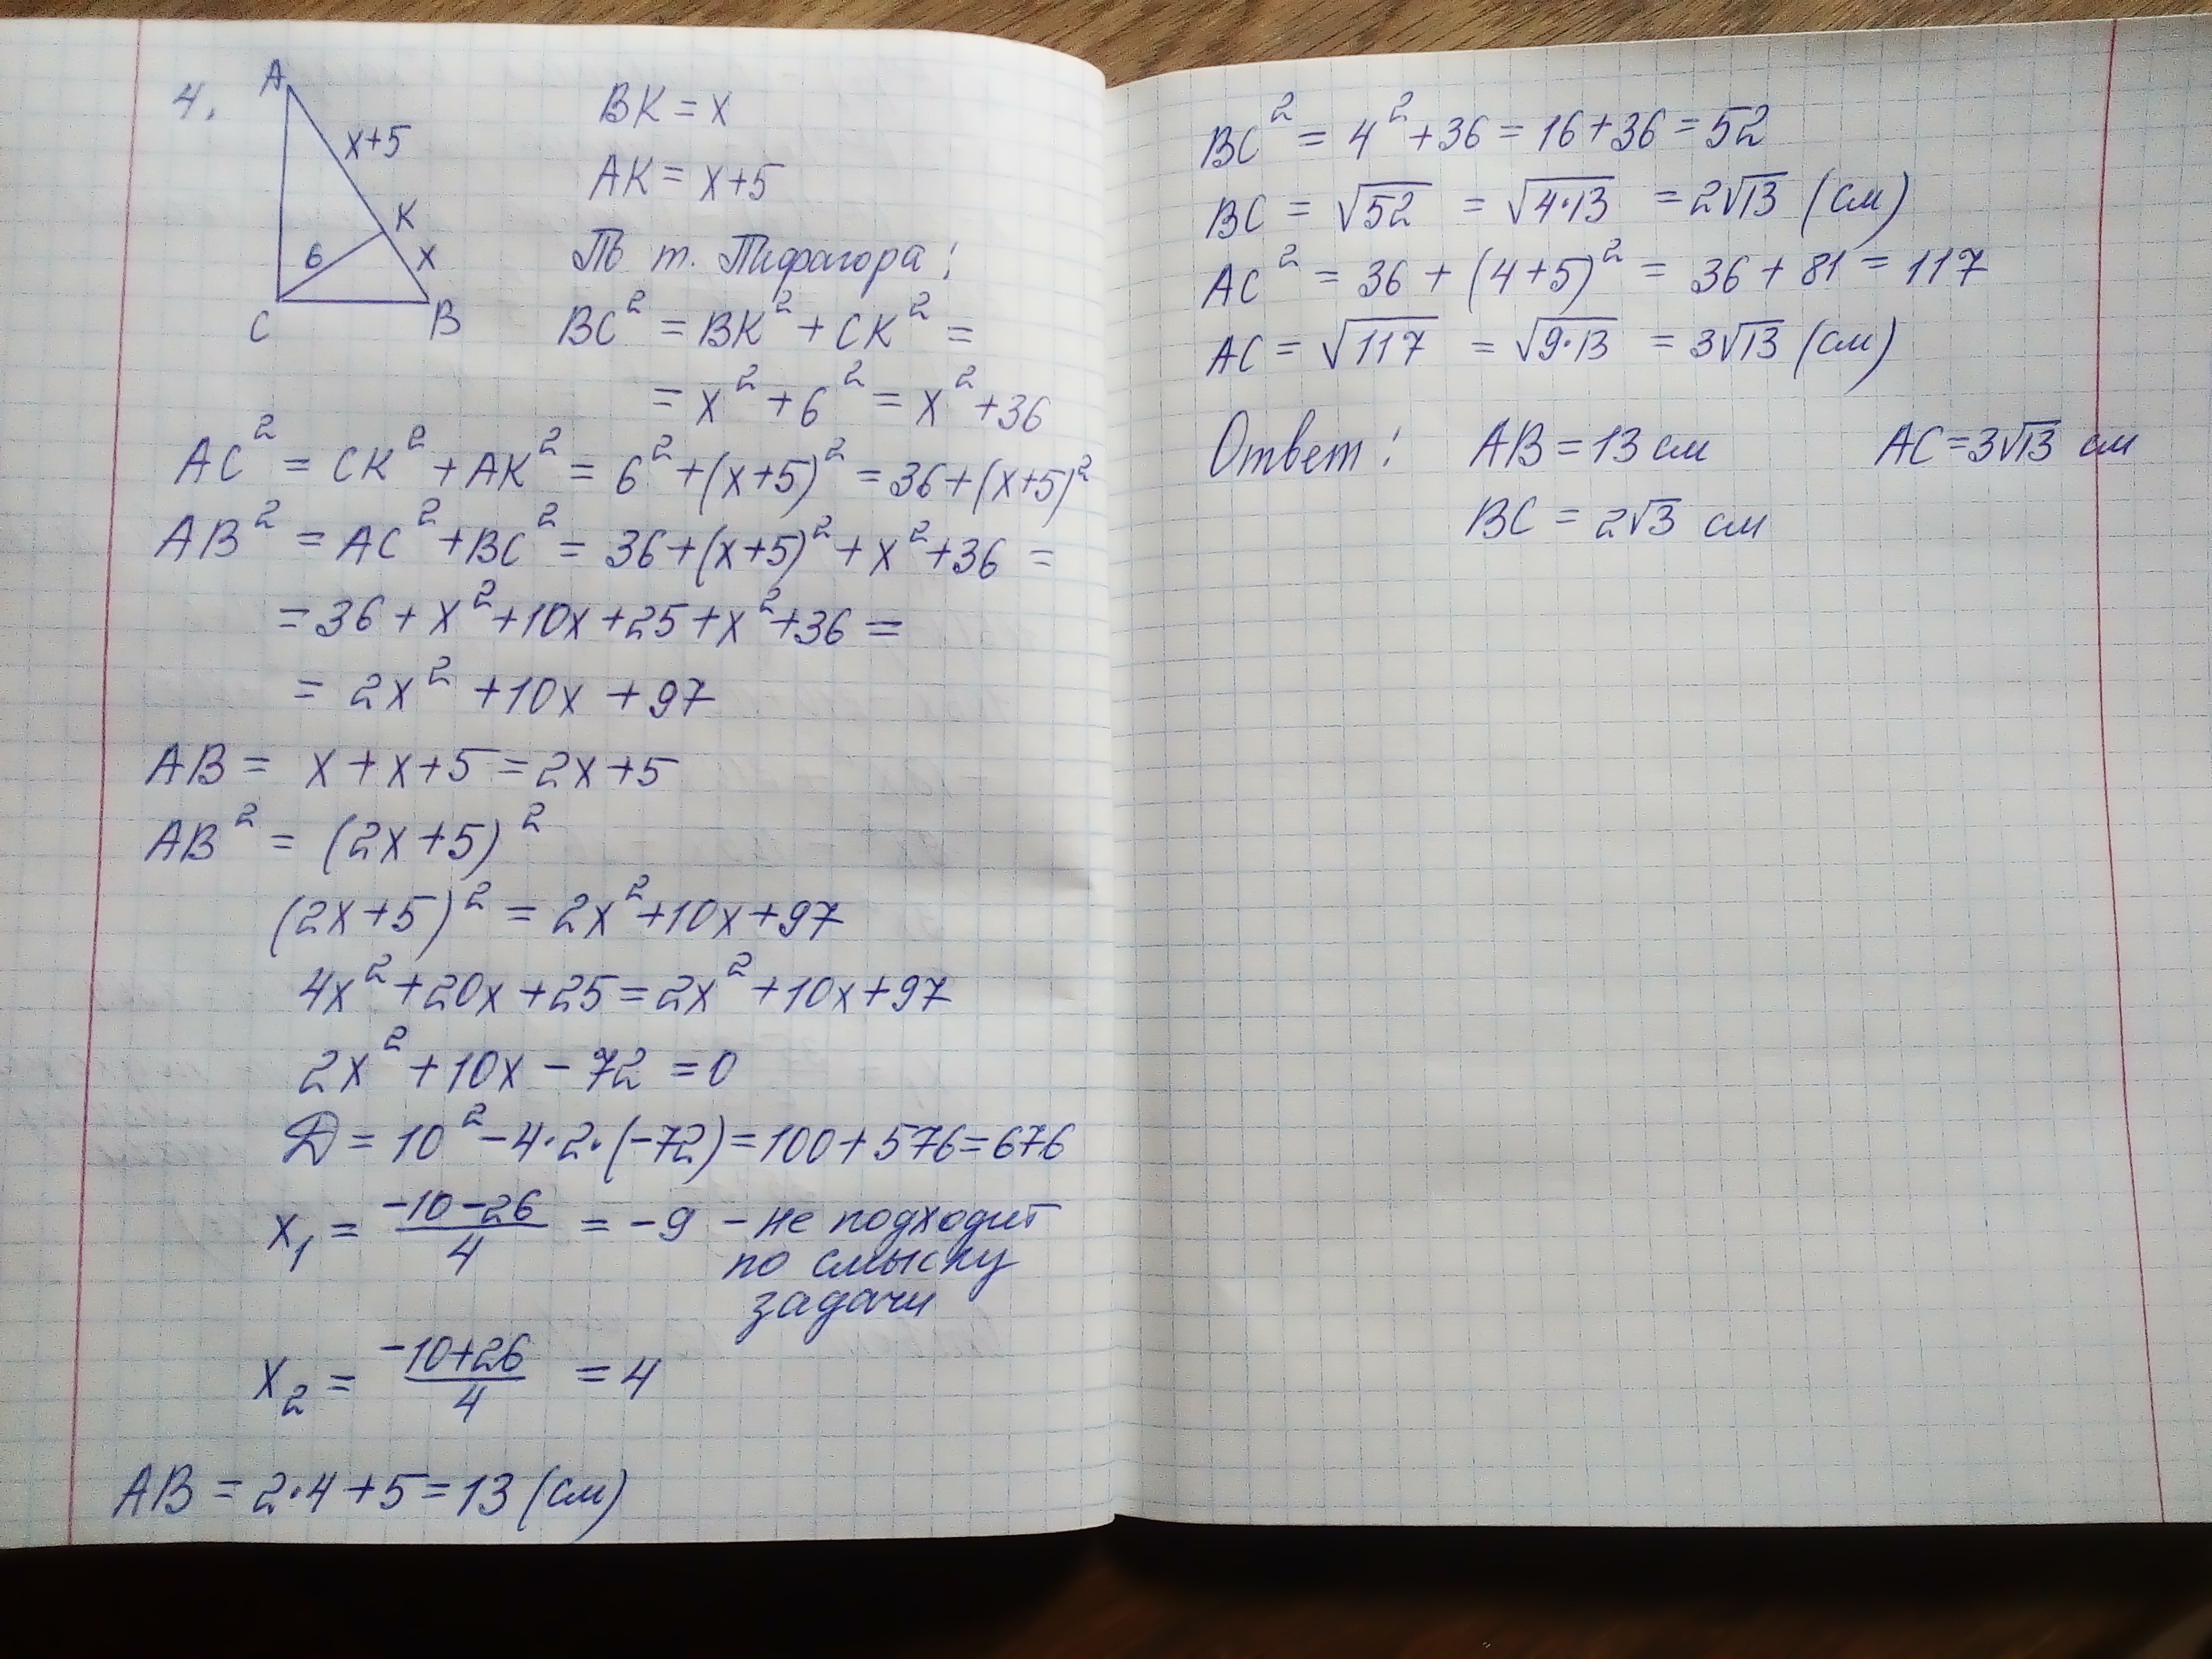 4.
A
x+5
K
6
x
C
B
BK = x
AK = x+5
По т. Пифагора:
BC² = BK² + CK² =
= x² + 6² = x² + 36
AC² = CK² + AK² = 6² + (x+5)² = 36 + (x+5)²
AB² = AC² + BC² = 36 + (x+5)² + x² + 36 =
= 36 + x² + 10x + 25 + x² + 36 =
= 2x² + 10x + 97
AB = x + x + 5 = 2x + 5
AB² = (2x+5)²
(2x+5)² = 2x² + 10x + 97
4x² + 20x + 25 = 2x² + 10x + 97
2x² + 10x - 72 = 0
D = 10² - 4·2·(-72) = 100 + 576 = 676
x₁ = (-10-26)/4 = -9 - не подходит
по смыслу
задачи
x₂ = (-10+26)/4 = 4
AB = 2·4 + 5 = 13 (см)
BC² = 4² + 36 = 16 + 36 = 52
BC = √52 = √4·13 = 2√13 (см)
AC² = 36 + (4+5)² = 36 + 81 = 117
AC = √117 = √9·13 = 3√13 (см)
Ответ: AB = 13 см AC = 3√13 см
BC = 2√3 см